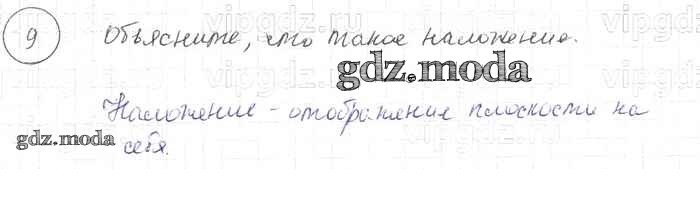 vipgdz.ru vipgdz.ru
9 Объясните, что такое наложение.
gdz.moda
vipgdz.ru
Наложение - отображение плоскости на
gdz.moda
себя.